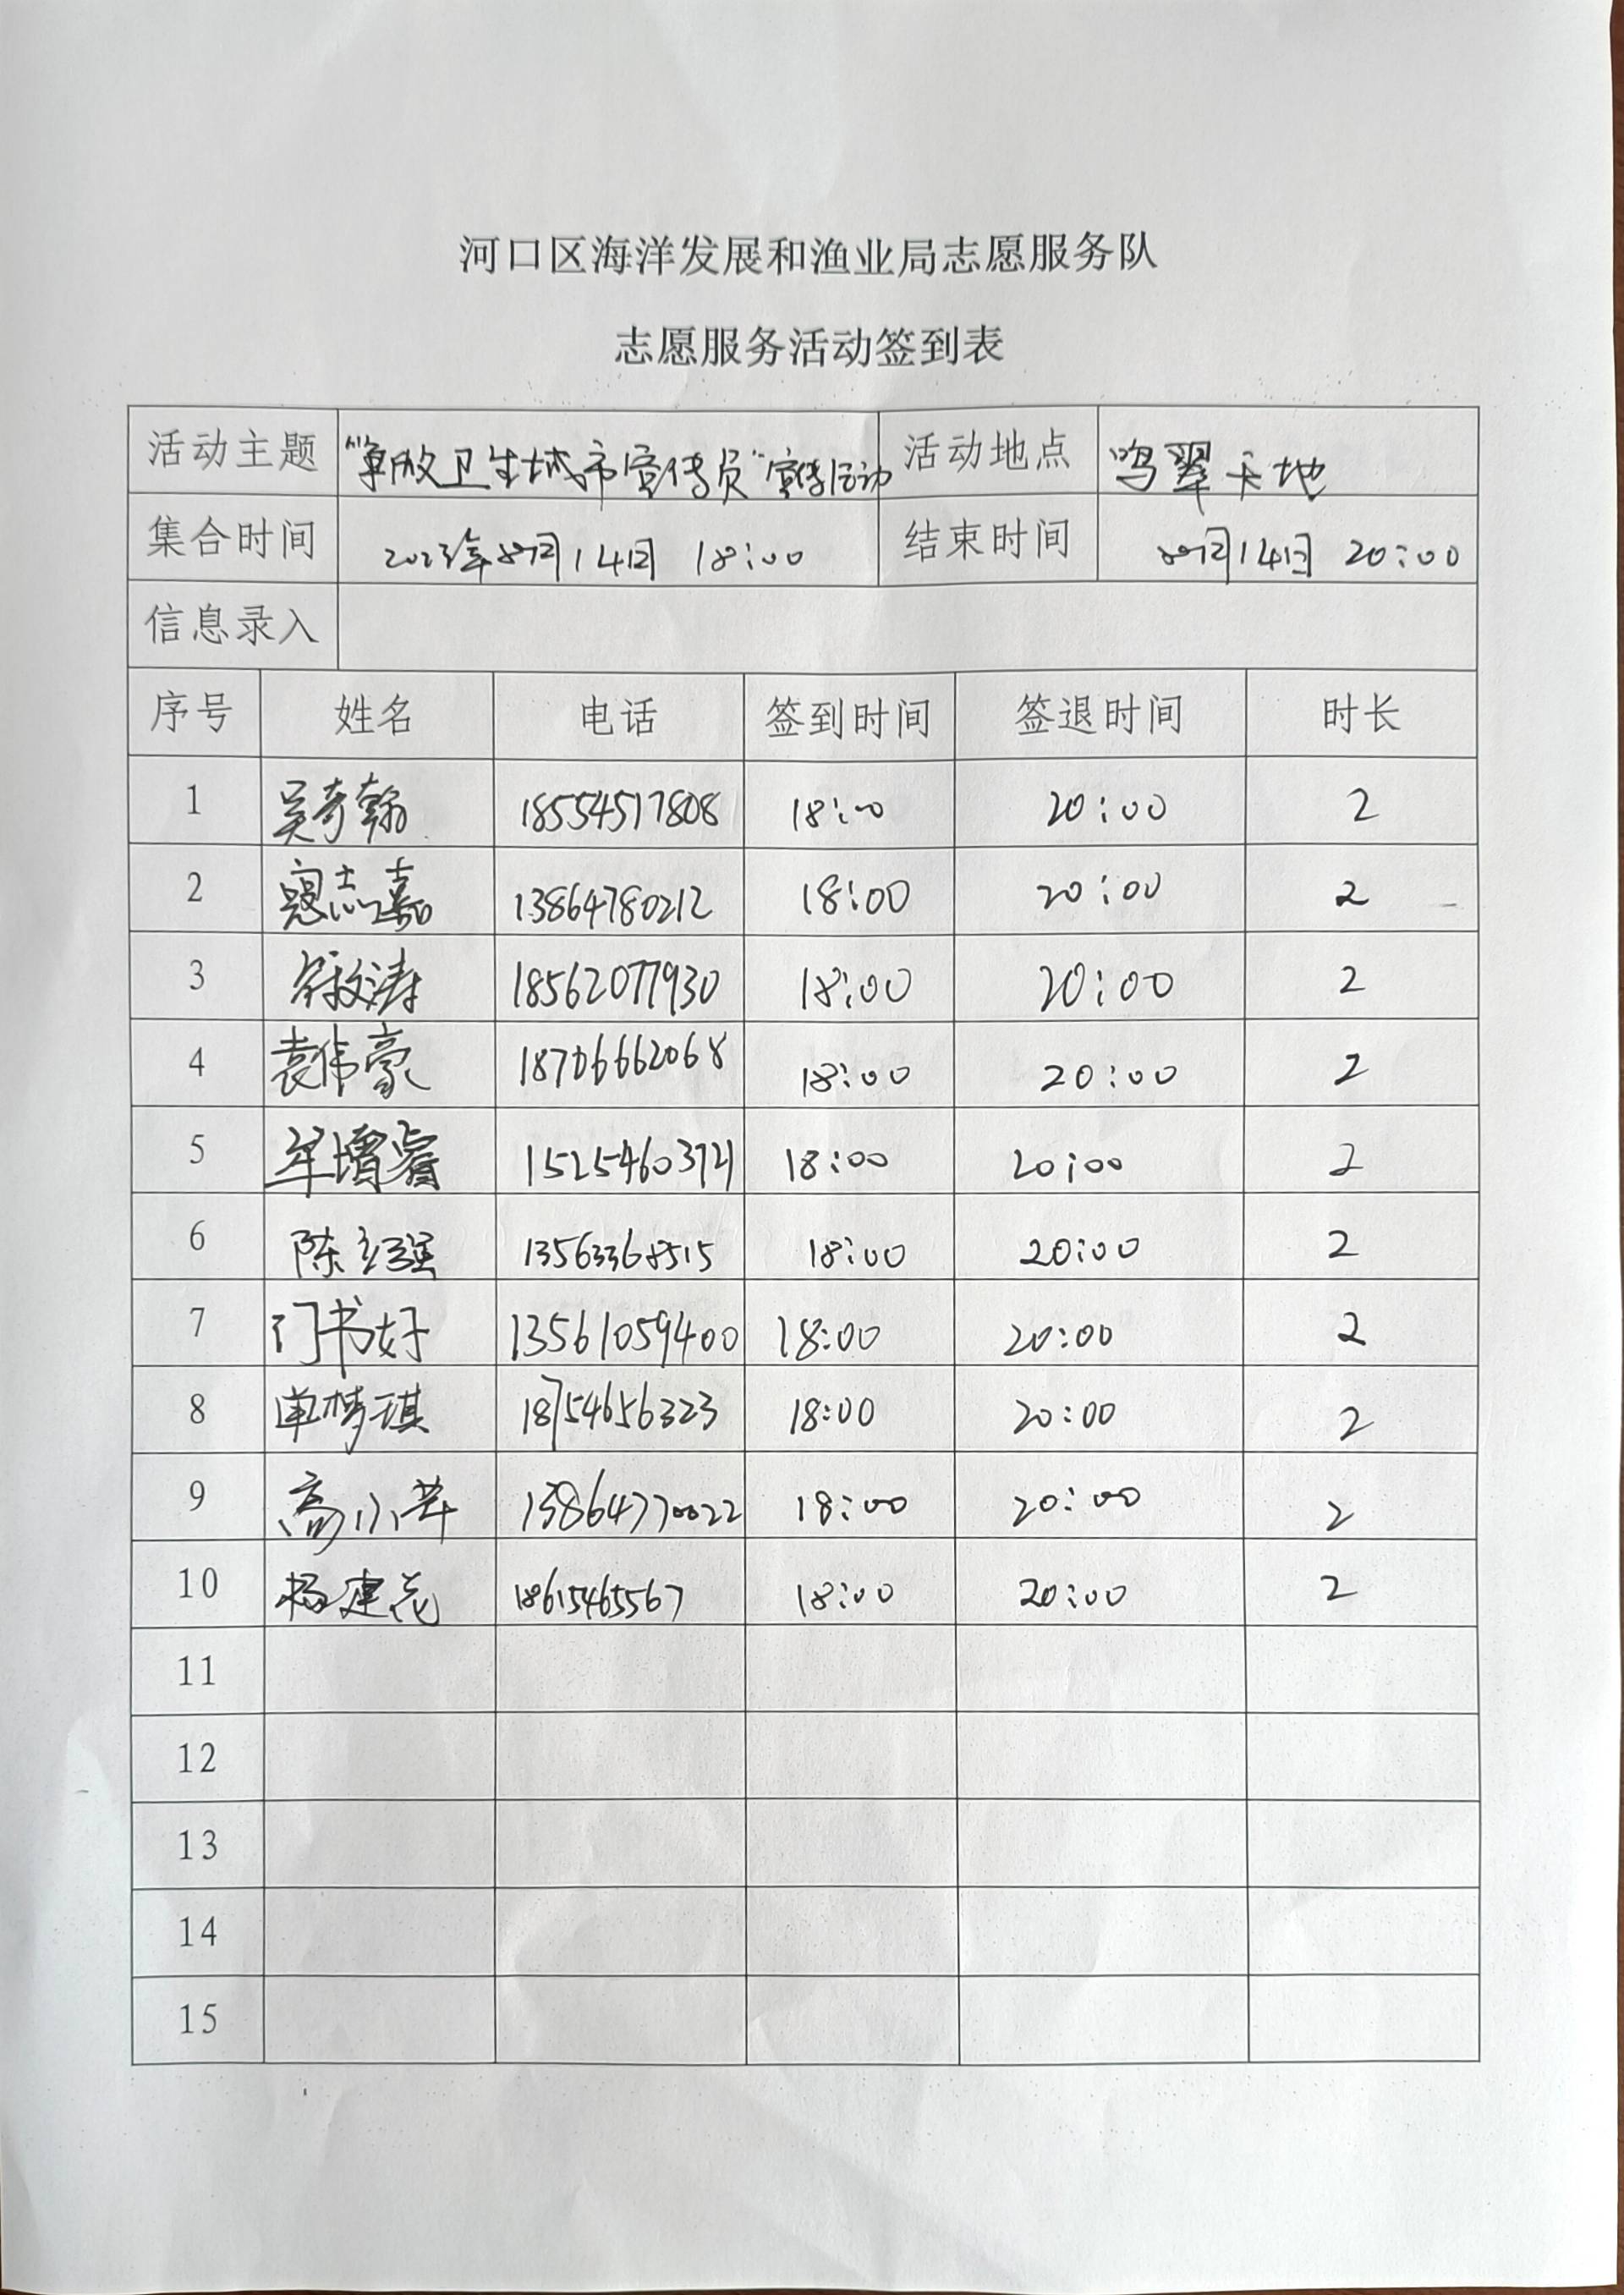 河口区海洋发展和渔业局志愿服务队
志愿服务活动签到表
活动主题 “争做卫生城市宣传员”宣传活动 活动地点 鸣翠天地
集合时间 2023年8月14日 18:00 结束时间 8月14日 20:00
信息录入
序号 姓名 电话 签到时间 签退时间 时长
1 吴奇翰 18554517808 18:00 20:00 2
2 寇志嘉 13864780212 18:00 20:00 2
3 徐文涛 18562077930 18:00 20:00 2
4 袁伟豪 18706662068 18:00 20:00 2
5 牟增睿 15254603721 18:00 20:00 2
6 陈立强 13563368515 18:00 20:00 2
7 门书好 13561059400 18:00 20:00 2
8 单梦琪 18754656323 18:00 20:00 2
9 高小芹 13864770022 18:00 20:00 2
10 杨建花 18615465567 18:00 20:00 2
11
12
13
14
15